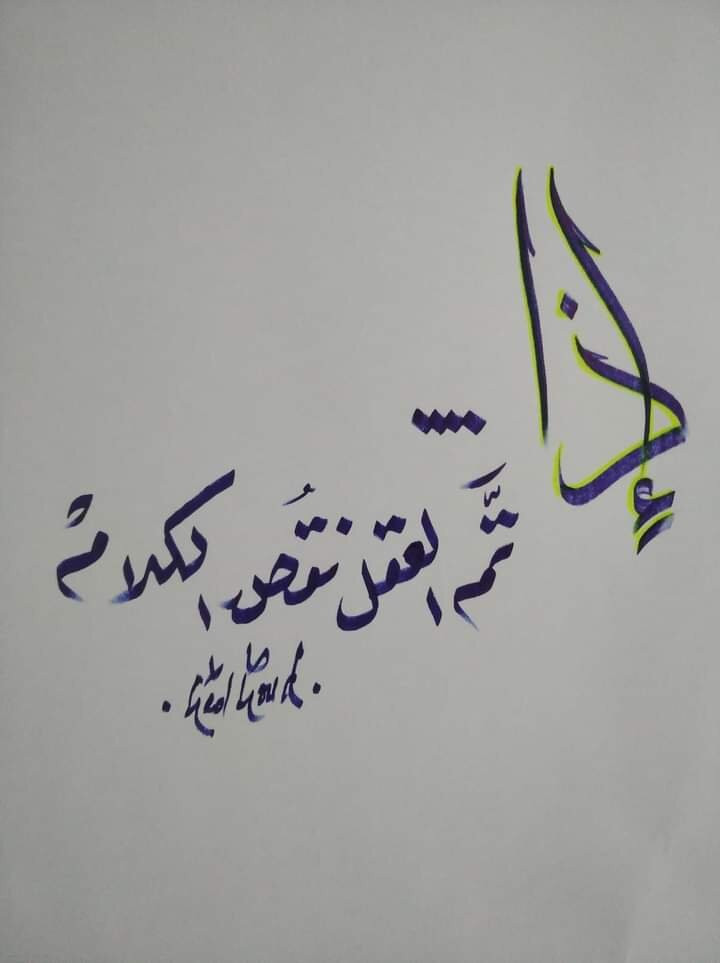 إذا
تَمَّ العقل نقصُ الكلامْ